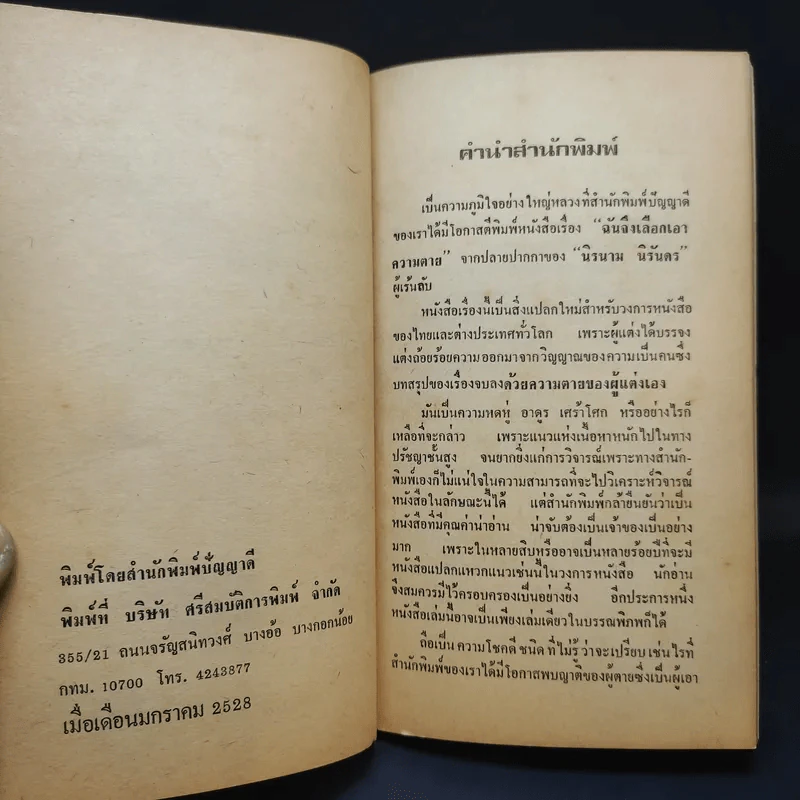 พิมพ์โดยสำนักพิมพ์ปัญญาดี
พิมพ์ที่ บริษัท ศรีสมบัติการพิมพ์ จำกัด
355/21 ถนนจรัญสนิทวงศ์ บางอ้อ บางกอกน้อย
กทม. 10700 โทร. 4243877
เมื่อเดือนมกราคม 2528
คำนำสำนักพิมพ์
เป็นความภูมิใจอย่างใหญ่หลวงที่สำนักพิมพ์ปัญญาดี
ของเราได้มีโอกาสตีพิมพ์หนังสือเรื่อง “ฉันจึงเลือกเอา
ความตาย” จากปลายปากกาของ “นิรนาม นิรันดร”
ผู้เร้นลับ
หนังสือเรื่องนี้เป็นสิ่งแปลกใหม่สำหรับวงการหนังสือ
ของไทยและต่างประเทศทั่วโลก เพราะผู้แต่งได้บรรจง
แต่งถ้อยร้อยความออกมาจากวิญญาณของความเป็นคนซึ่ง
บทสรุปของเรื่องจบลงด้วยความตายของผู้แต่งเอง
มันเป็นความหดหู่ อาดูร เศร้าโศก หรืออย่างไรก็
เหลือที่จะกล่าว เพราะแนวแห่งเนื้อหาหนักไปในทาง
ปรัชญาชั้นสูง จนยากยิ่งแก่การวิจารณ์เพราะทางสำนัก-
พิมพ์เองก็ไม่แน่ใจในความสามารถที่จะไปวิเคราะห์วิจารณ์
หนังสือในลักษณะนี้ได้ แต่สำนักพิมพ์กล้ายืนยันว่าเป็น
หนังสือที่มีคุณค่าน่าอ่าน น่าจับต้องเป็นเจ้าของเป็นอย่าง
มาก เพราะในหลายสิบหรืออาจเป็นหลายร้อยปีที่จะมี
หนังสือแปลกแหวกแนวเช่นนี้ในวงการหนังสือ นักอ่าน
จึงสมควรมีไว้ครอบครองเป็นอย่างยิ่ง อีกประการหนึ่ง
หนังสือเล่มนี้อาจเป็นเพียงเล่มเดียวในบรรณพิภพก็ได้
ถือเป็นความโชคดีชนิดที่ไม่รู้ว่าจะเปรียบเช่นไรที่
สำนักพิมพ์ของเราได้มีโอกาสพบญาติของผู้ตายซึ่งเป็นผู้เอา